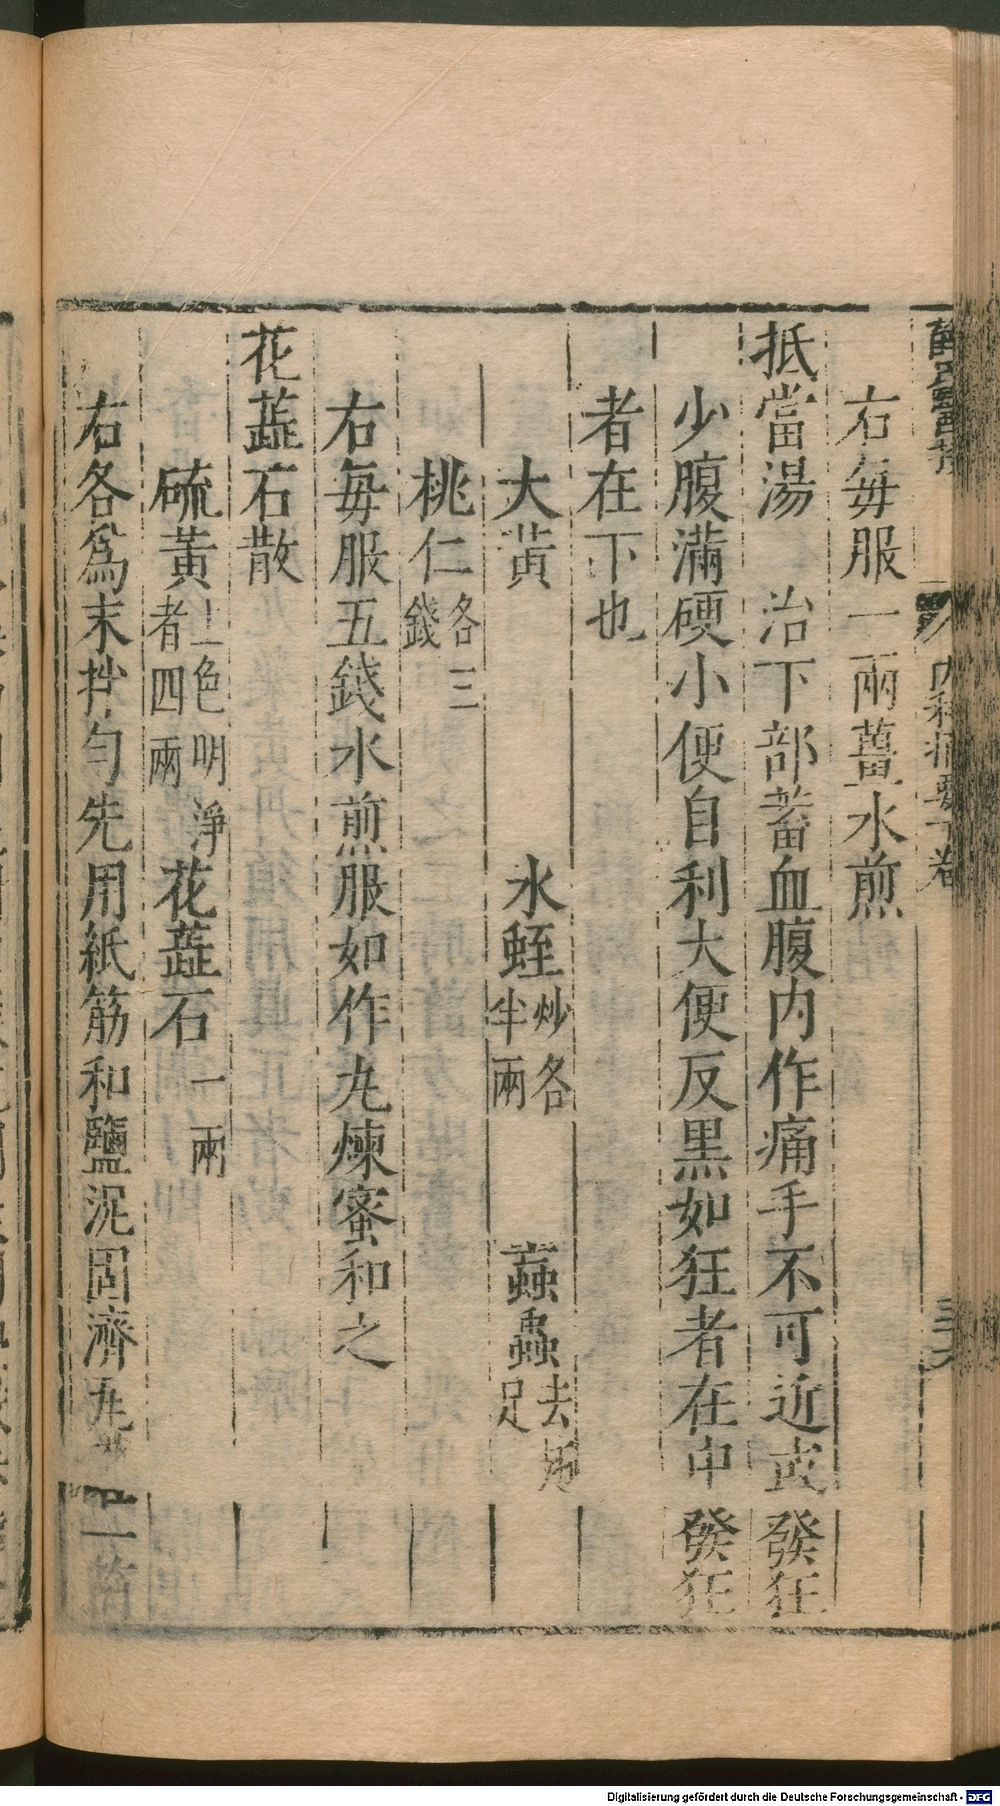 薛氏醫按 內科摘要下卷 三六
右每服一兩薑水煎
抵當湯 治下部蓄血腹內作痛手不可近或發狂
少腹滿硬小便自利大便反黑如狂者在中發狂
者在下也
大黃 水蛭炒各半兩 蝱蟲去翅足
桃仁各三錢
右每服五錢水煎服如作丸煉蜜和之
花蕋石散
硫黃上色明淨者四兩 花蕋石一兩
右各爲末拌勻先用紙筋和鹽泥固濟瓦 二箇
Digitalisierung gefördert durch die Deutsche Forschungsgemeinschaft - DFG